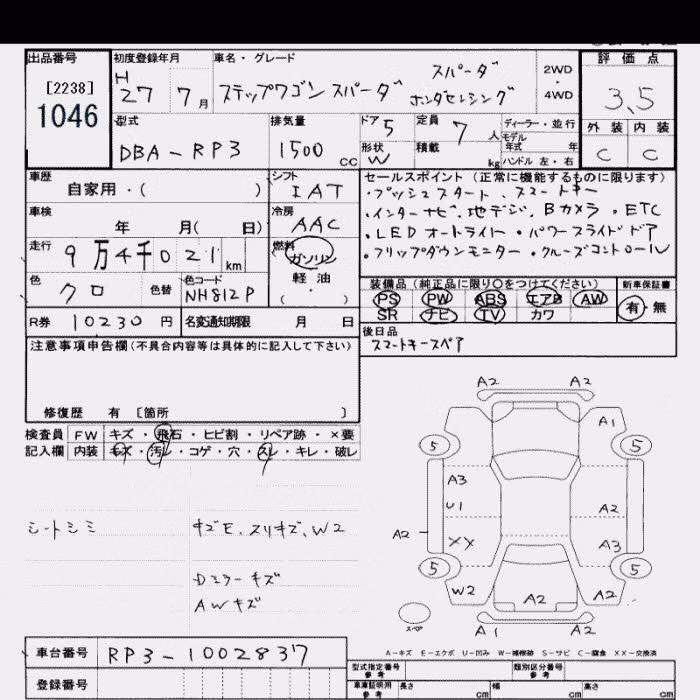 出品番号
[2238]
1046
初度登録年月
H
27 7月
車名・グレード
ステップワゴン スパーダ
スパーダ
ホンダセンシング
2WD
・
4WD
評価点
3.5
外装 内装
C C
型式
DBA-RP3
排気量
1500 CC
ドア 5
形状 W
定員 7 人
積載 kg
ディーラー・並行
モデル
年式 年
ハンドル 左・右
車歴
自家用・( )
シフト
IAT
車検
年 月( 日)
冷房
AAC
走行
9万4千021 km
燃料
ガソリン
軽油
( ・ )
色
クロ
色替
色コード
NH812P
R券 10230 円
名変通知期限 月 日
セールスポイント(正常に機能するものに限ります)
・プッシュスタート、スマートキー
・インターナビ、地デジ、Bカメラ、ETC
・LEDオートライト・パワースライドドア
・フリップダウンモニター・クルーズコントロール
装備品(純正品に限り○をつけてください)
PS PW ABS エアB AW
SR ナビ TV カワ
新車保証書
有・無
後日品
スマートキースペア
注意事項申告欄(不具合内容等は具体的に記入して下さい)
修復歴 有 [箇所 ]
検査員 FW キズ・飛石・ヒビ割・リペア跡・×要
記入欄 内装 キズ・汚レ・コゲ・穴・スレ・キレ・破レ
シートシミ
キズE、スリキズ、W2
Dミラーキズ
AWキズ
A2 A2
A1
5 5
A3
U1 A2
A2
XX A3
5 5
W2 A2 A2
スペア
A1 A2
A-キズ E-エクボ U-凹み W-補修跡 S-サビ C-腐食 XX-交換済
車台番号 RP3-1002837
登録番号
型式指定番号
参考
類別区分番号
参考
車庫証明用
参考
長さ cm 幅 cm 高さ cm